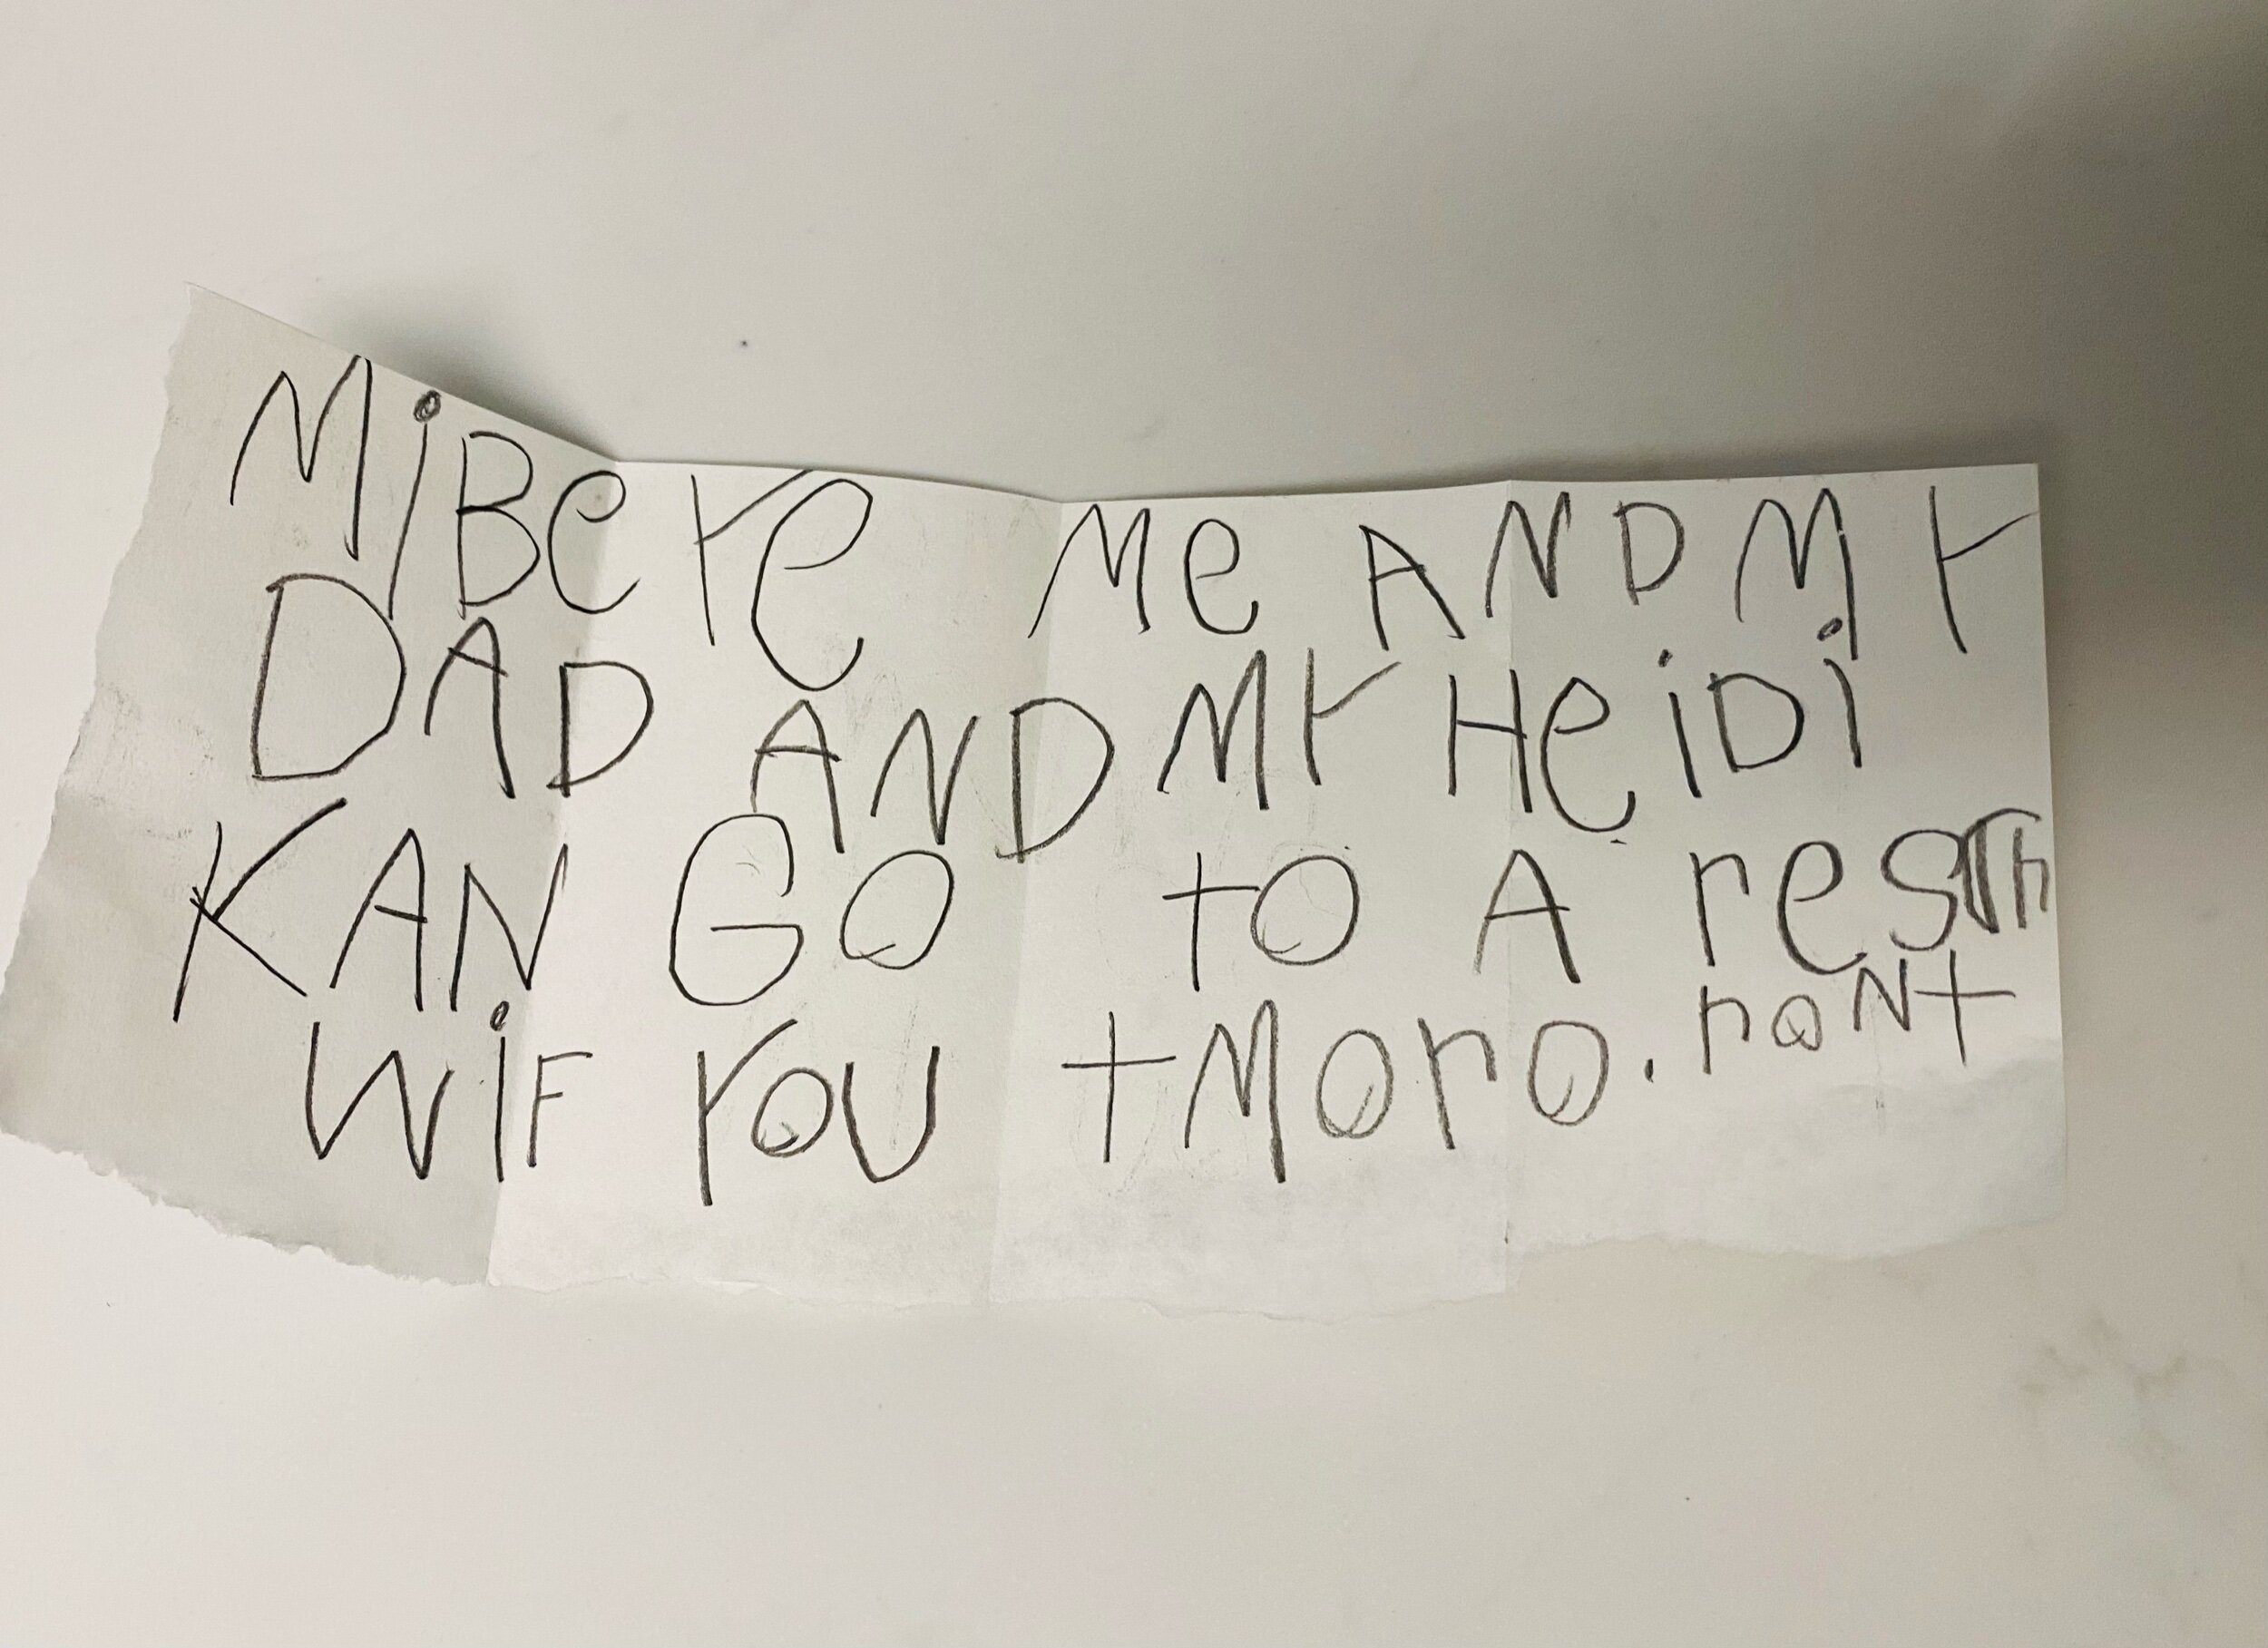 MiBeYe Me AND MY
DAD AND MY HeiDi
KAN GO to A rest
rONt
WiF YOU tMOrO.